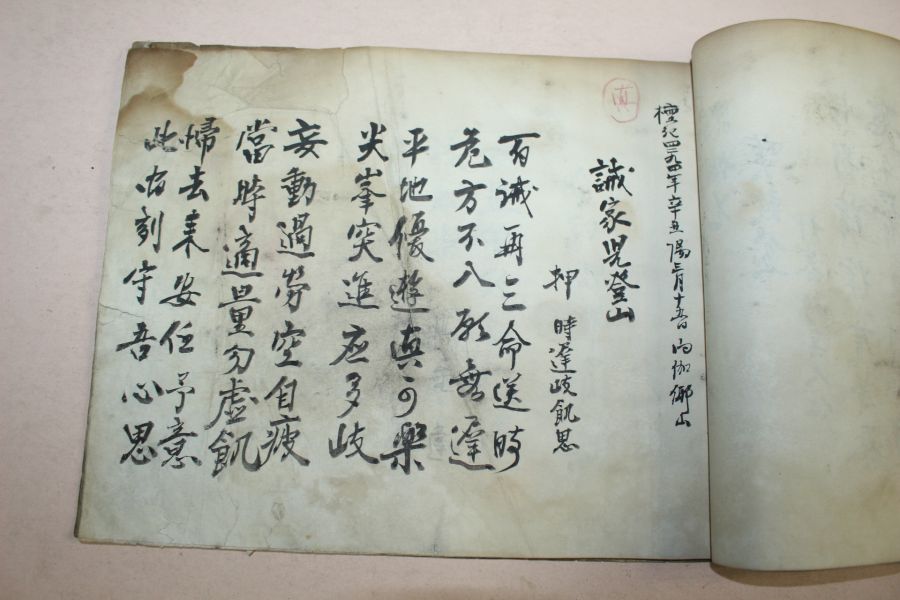 檀紀四二九四年辛丑 陽三月十五日 向伽倻山
誡家兒登山
押 時遲岐飢思
百誡再三命送時
危方不入願無遲
平地優遊眞可樂
尖峯突進応多岐
妄動過勞空自疲
當時適量勿虛飢
歸去来安任予意
此刻守吾心思